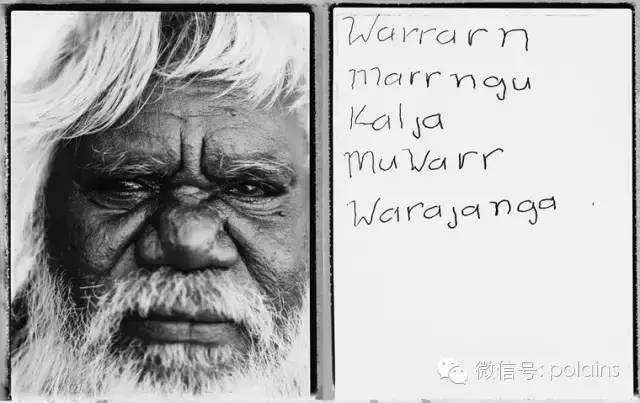 Warrarn
Marrngu
Kalja
Muwarr
Warajanga
微信号: polains